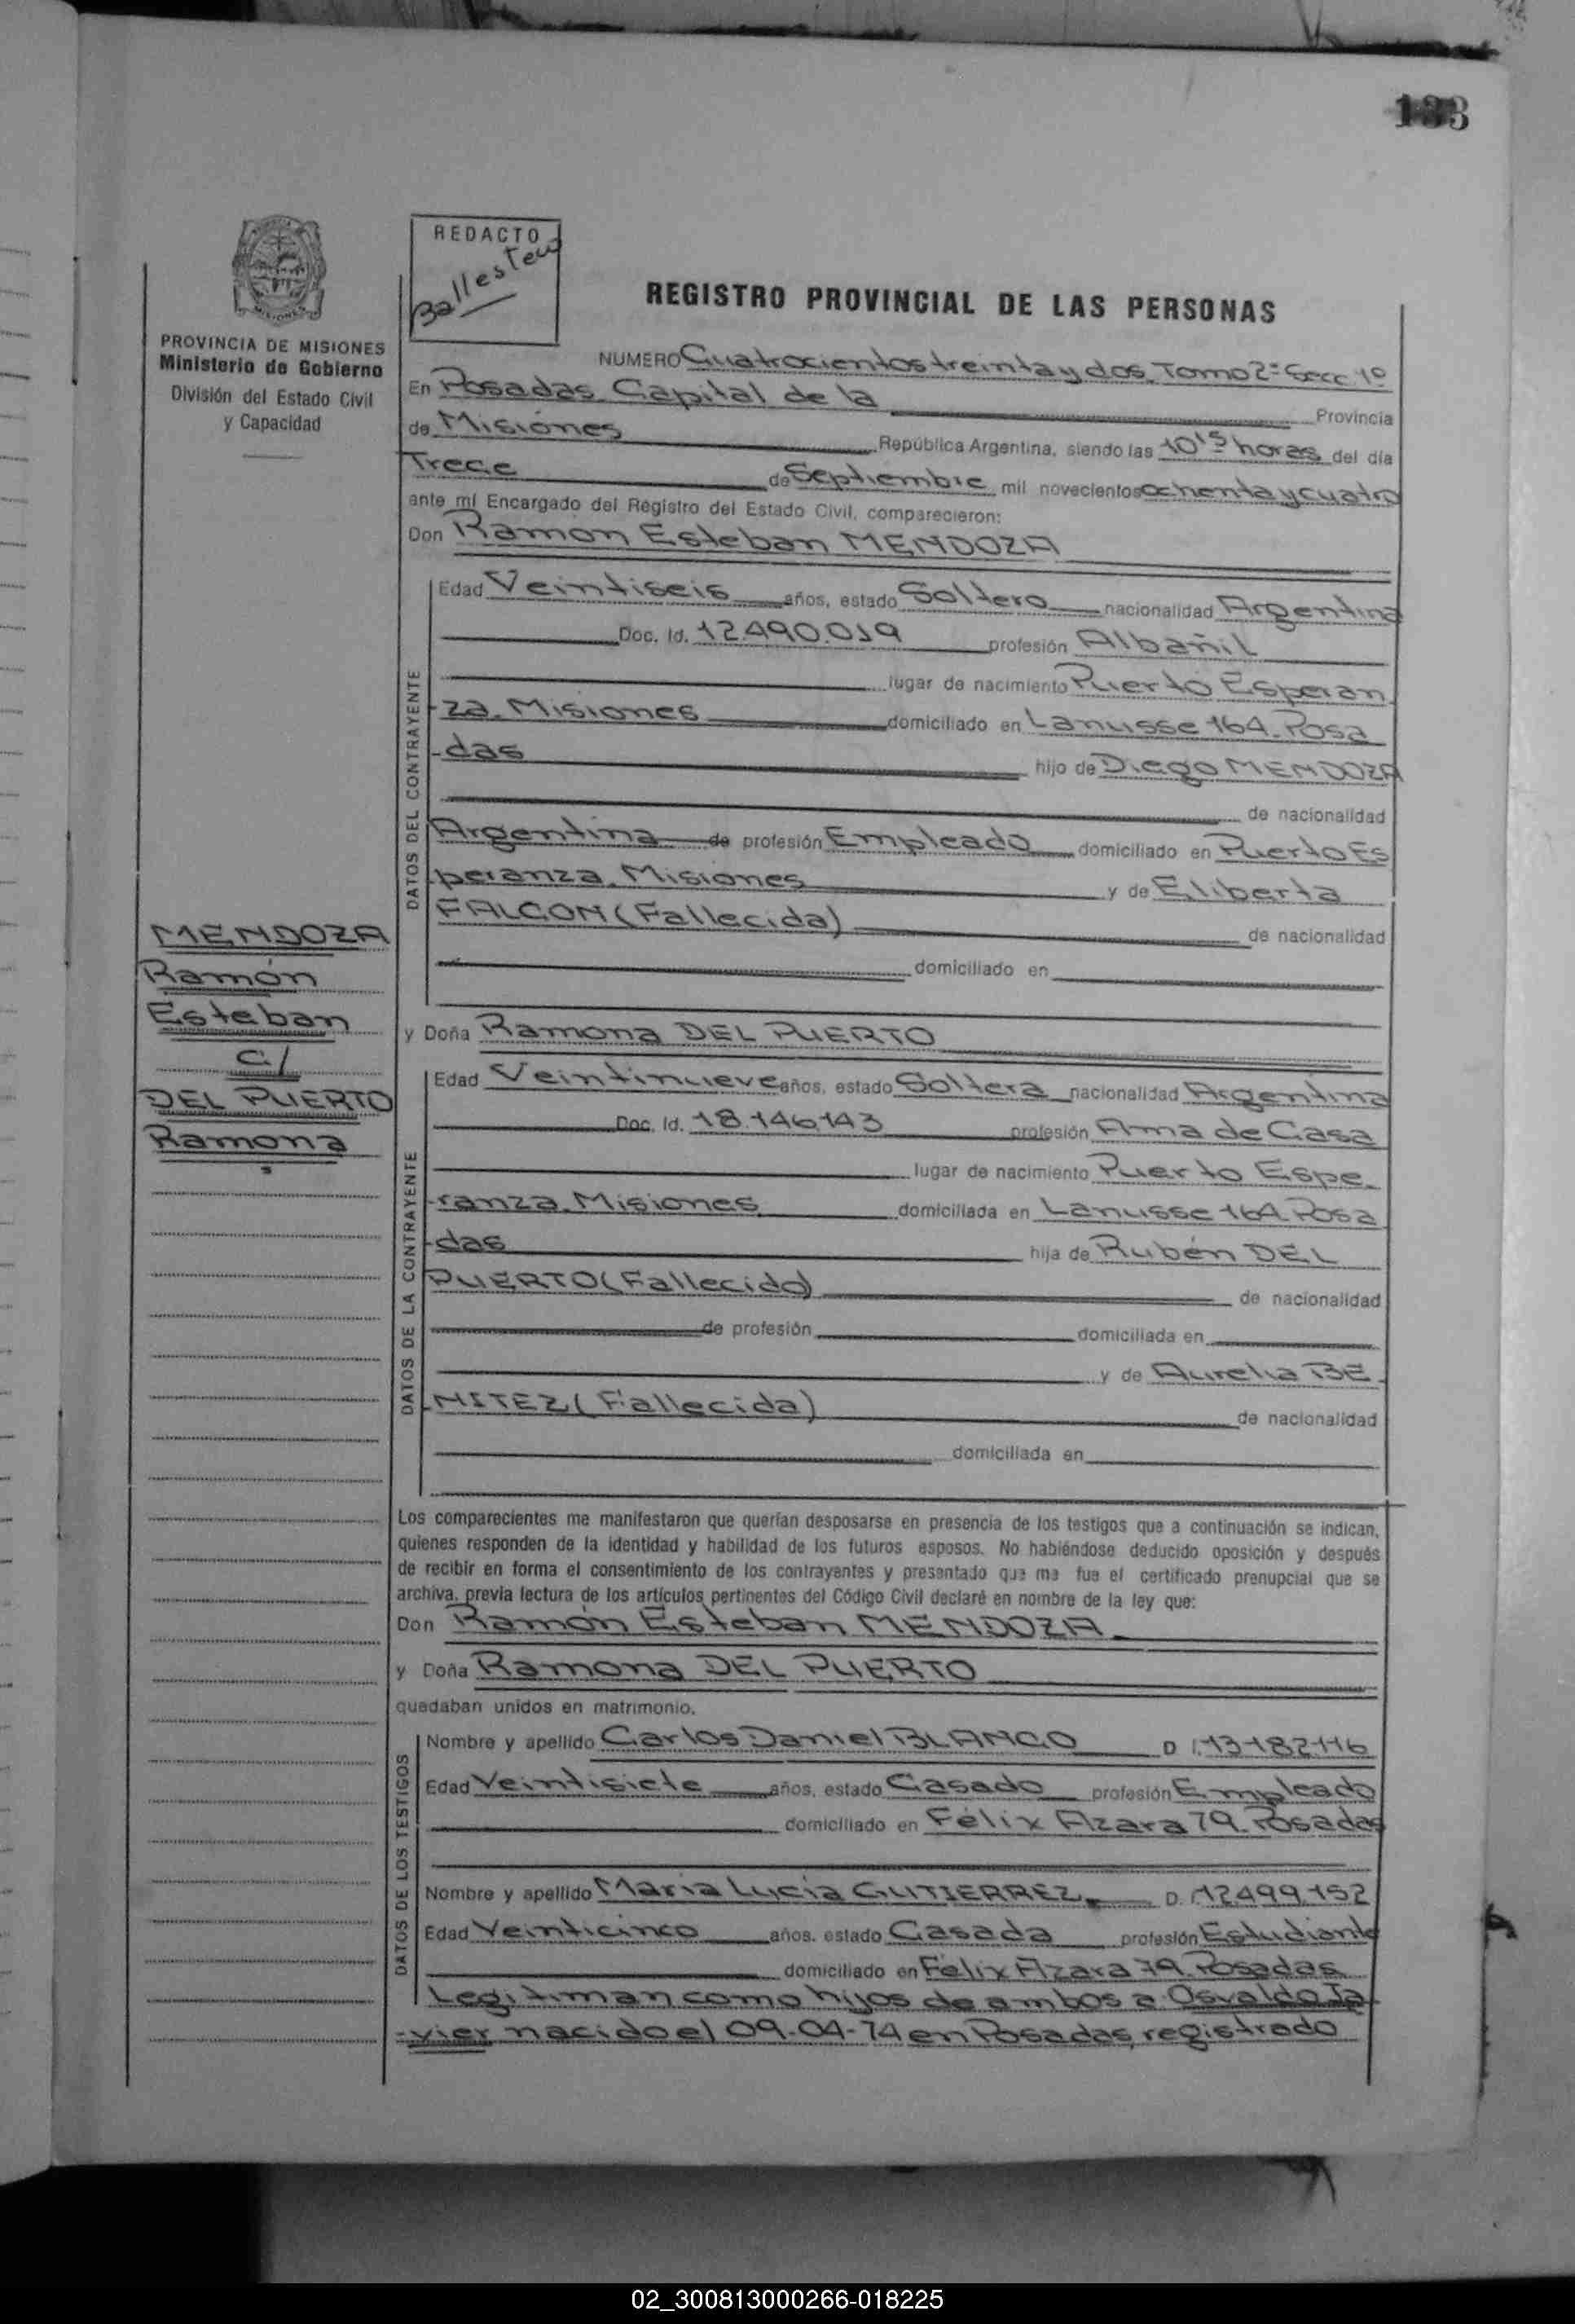 133
REDACTO
Ballesteros
REGISTRO PROVINCIAL DE LAS PERSONAS
PROVINCIA DE MISIONES
Ministerio de Gobierno
División del Estado Civil
y Capacidad
NUMERO Cuatrocientos treinta y dos. Tomo 2º Secc 1º
En Posadas. Capital de la Provincia
de Misiones República Argentina, siendo las 10 15 horas del día
Trece de Septiembre mil novecientos ochenta y cuatro
ante mí Encargado del Registro del Estado Civil, comparecieron:
Don Ramon Esteban MENDOZA
DATOS DEL CONTRAYENTE
Edad Veintiseis años, estado Soltero nacionalidad Argentina
Doc. Id. 12.490.019 profesión Albañil
lugar de nacimiento Puerto Esperan
za. Misiones domiciliado en Lanusse 164. Posa
-das hijo de Diego MENDOZA
de nacionalidad
Argentina de profesión Empleado domiciliado en Puerto Es
peranza. Misiones y de Eliberta
FALCON (Fallecida) de nacionalidad
domiciliado en
MENDOZA
Ramón
Esteban
c/
DEL PUERTO
Ramona
y Doña Ramona DEL PUERTO
DATOS DE LA CONTRAYENTE
Edad Veintinueve años, estado Soltera nacionalidad Argentina
Doc. Id. 18.146.143 profesión Ama de Casa
lugar de nacimiento Puerto Espe-
ranza. Misiones domiciliada en Lanusse 164. Posa
-das hija de Rubén DEL
PUERTO (Fallecido) de nacionalidad
de profesión domiciliada en
y de Aurelia BE
-NITEZ (Fallecida) de nacionalidad
domiciliada en
Los comparecientes me manifestaron que querían desposarse en presencia de los testigos que a continuación se indican,
quienes responden de la identidad y habilidad de los futuros esposos. No habiéndose deducido oposición y después
de recibir en forma el consentimiento de los contrayentes y presentado que me fue el certificado prenupcial que se
archiva, previa lectura de los artículos pertinentes del Código Civil declaré en nombre de la ley que:
Don Ramón Esteban MENDOZA
y Doña Ramona DEL PUERTO
quedaban unidos en matrimonio.
DATOS DE LOS TESTIGOS
Nombre y apellido Carlos Daniel BLANCO D.I. 13.182.116
Edad Veintisiete años, estado Casado profesión Empleado
domiciliado en Félix Azara 79. Posadas
Nombre y apellido Maria Lucia GUTIERREZ D.I. 12.499.152
Edad Veinticinco años, estado Casada profesión Estudiante
domiciliado en Félix Azara 79. Posadas
Legitiman como hijos de ambos a Osvaldo Ja
-vier nacido el 09-04-74 en Posadas, registrado
02_300813000266-018225